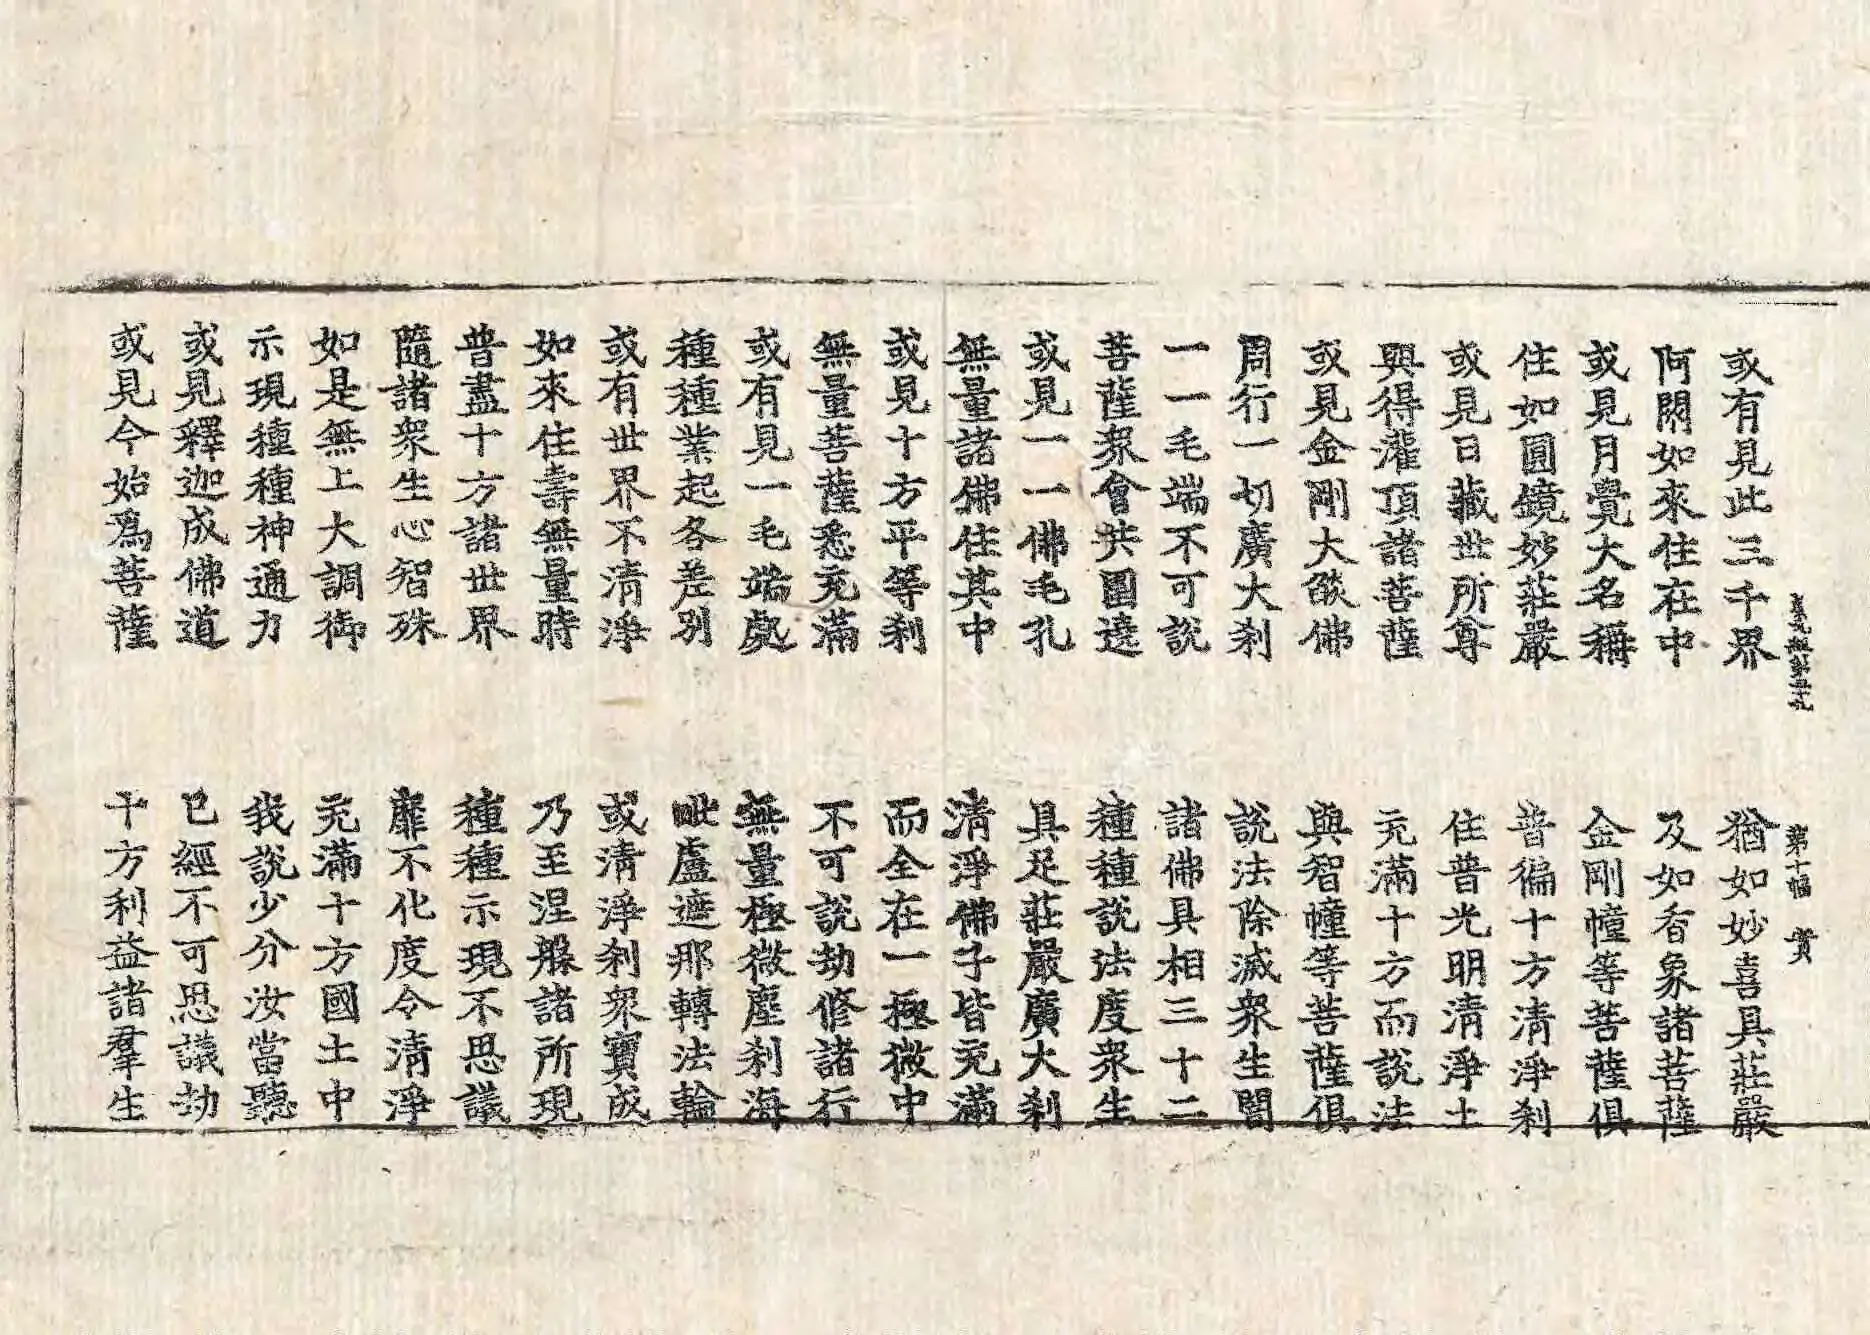 貞元經第三十九　第十幅　賓
或有見此三千界　猶如妙喜具莊嚴
阿閦如來住在中　及如香象諸菩薩
或見月覺大名稱　金剛幢等菩薩俱
住如圓鏡妙莊嚴　普徧十方清淨刹
或見日藏世所尊　住普光明清淨土
與得灌頂諸菩薩　充滿十方而說法
或見金剛大燄佛　與智幢等菩薩俱
周行一切廣大刹　說法除滅衆生闇
一一毛端不可說　諸佛具相三十二
菩薩衆會共圍遶　種種說法度衆生
或見一一佛毛孔　具足莊嚴廣大刹
無量諸佛住其中　清淨佛子皆充滿
或見十方平等刹　而全在一極微中
無量菩薩悉充滿　不可說劫修諸行
或有見一毛端處　無量極微塵刹海
種種業起各差別　毗盧遮那轉法輪
或有世界不清淨　或清淨刹衆寶成
如來住壽無量時　乃至涅槃諸所現
普盡十方諸世界　種種示現不思議
隨諸衆生心智殊　靡不化度令清淨
如是無上大調御　充滿十方國土中
示現種種神通力　我說少分汝當聽
或見釋迦成佛道　已經不可思議劫
或見今始爲菩薩　十方利益諸羣生